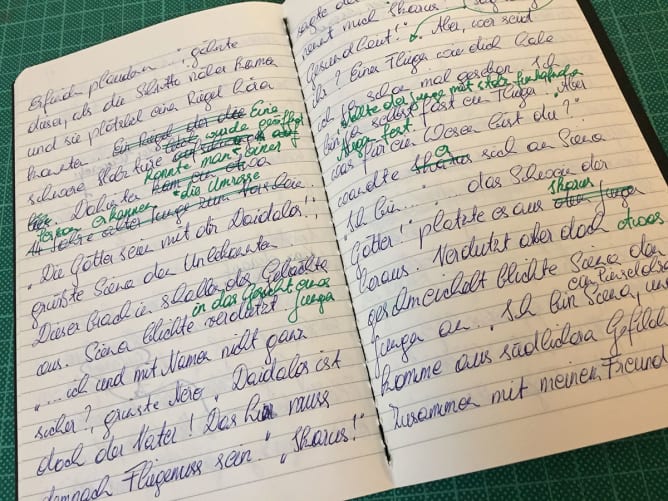 plaudern ..." gähnte
dieser, als die Schritte näher kamen
und sie plötzlich einen Riegel hören
konnten. Ein Riegel der die Eine
schwere Holztüre wurde geöffnet
Dahinter konnte man einer
Person erkennen "die Umrisse
14 Jahre alter Junge zum Vorschein
"Die Götter seien mit dir Daidalos!",
grüßte Siena den Unbekannten
Dieser brach in schallendes Gelächter
aus. Siena blickte verdutzt in das Gesicht eines Jungen
"... ich und mit Namen nicht ganz
sicher?, grinste Nero "Daidalos ist
doch der Vater! Das hier muss
demnach Fliegenuss sein." "Ikarus!"
sagte der
nennt mich Ikarus
Gesundheit!" Aber, wer seid
ihr? Einen Flieger wie dich habe
ich schon mal gesehen. Ich
bin ja selbst fast ein Flieger." Aber
stellte der Junge mit stolz
Augen fest.
was für ein Wesen bist du?"
wandte er sich an Siena
"Ich bin ..." "... das Schwein der
Götter!" platzte es aus Ikarus
heraus. Verdutzt aber doch etwas
geschmeichelt blickte Siena den
Jungen an. "Ich bin Siena, und
komme aus südlichen Gefilden
zusammen mit meinen Freund